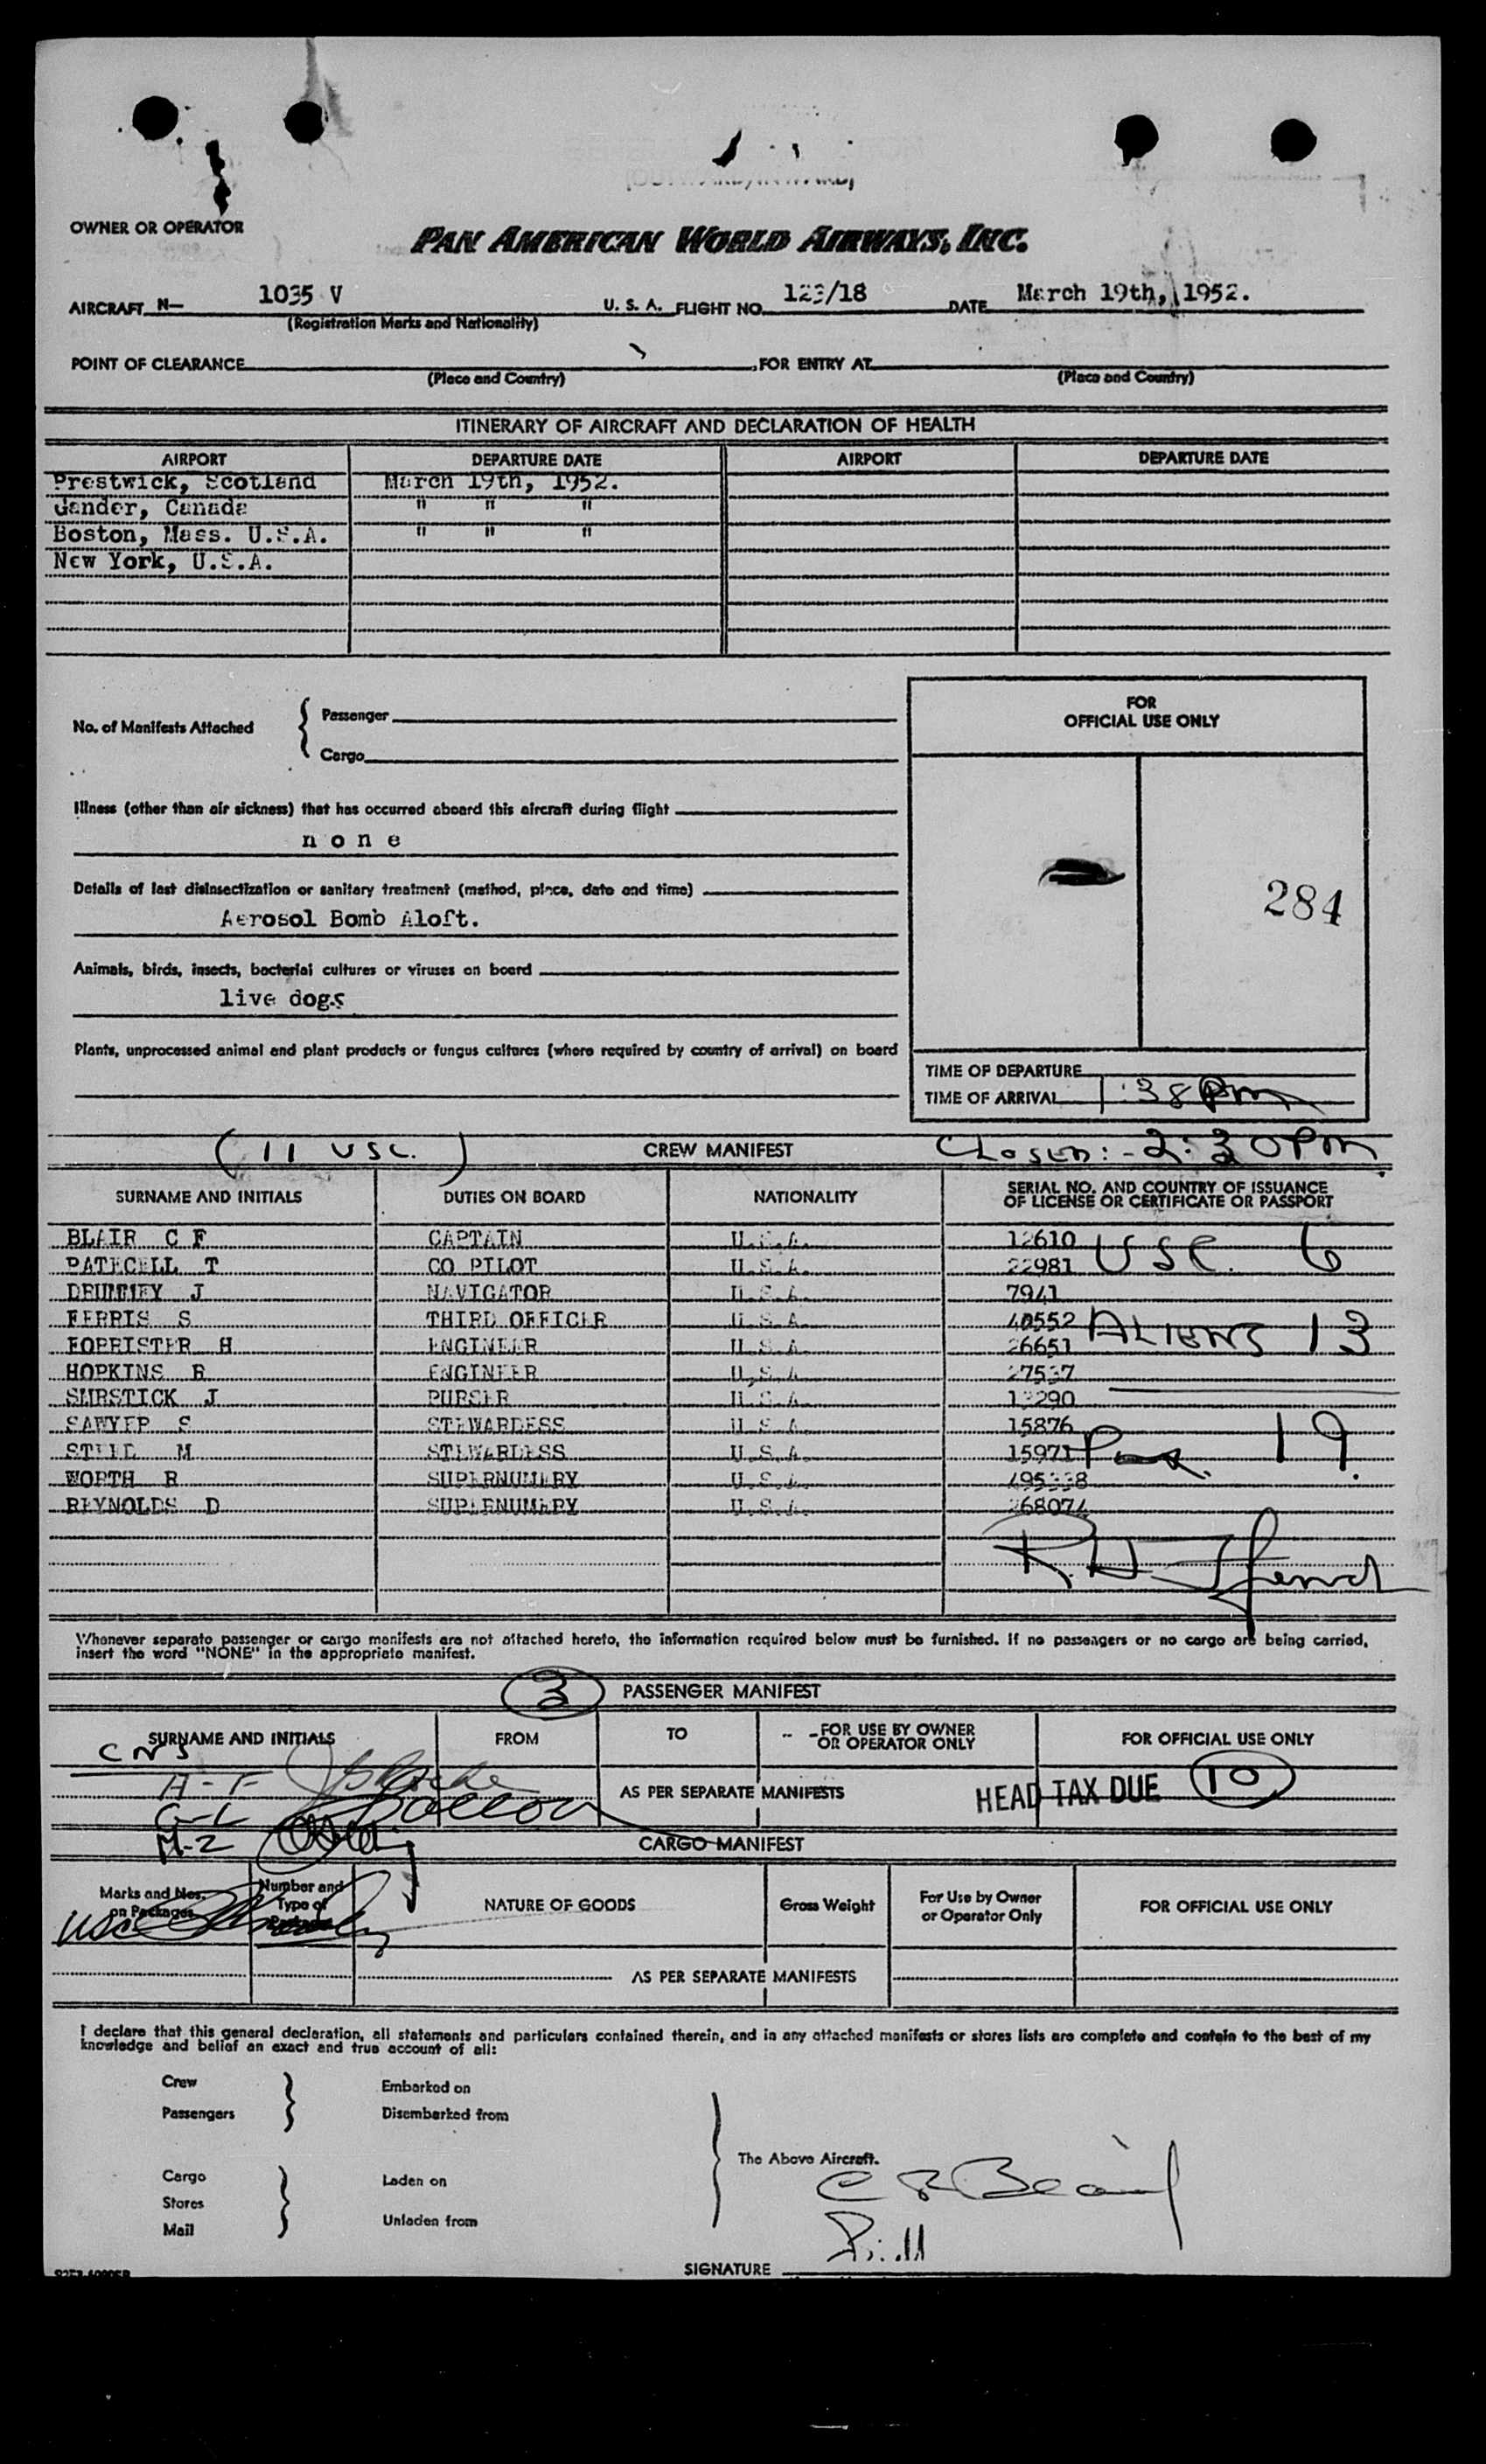 OWNER OR OPERATOR
PAN AMERICAN WORLD AIRWAYS, INC.
AIRCRAFT N— 1035 V U. S. A. FLIGHT NO. 123/18 DATE March 19th, 1952.
(Registration Marks and Nationality)
POINT OF CLEARANCE , FOR ENTRY AT
(Place and Country) (Place and Country)
ITINERARY OF AIRCRAFT AND DECLARATION OF HEALTH
AIRPORT DEPARTURE DATE AIRPORT DEPARTURE DATE
Prestwick, Scotland March 19th, 1952.
Gander, Canada " " "
Boston, Mass. U.S.A. " " "
New York, U.S.A.
No. of Manifests Attached { Passenger
Cargo
FOR
OFFICIAL USE ONLY
Illness (other than air sickness) that has occurred aboard this aircraft during flight
n o n e
Details of last disinsectization or sanitary treatment (method, place, date and time)
Aerosol Bomb Aloft.
284
Animals, birds, insects, bacterial cultures or viruses on board
live dogs
Plants, unprocessed animal and plant products or fungus cultures (where required by country of arrival) on board
TIME OF DEPARTURE
TIME OF ARRIVAL 1:38 PM
(11 USC.) CREW MANIFEST CLOSED:- 2:30 PM
SURNAME AND INITIALS DUTIES ON BOARD NATIONALITY SERIAL NO. AND COUNTRY OF ISSUANCE
OF LICENSE OR CERTIFICATE OR PASSPORT
BLAIR C F CAPTAIN U.S.A. 12610 USC. 6
T CO PILOT U.S.A. 22981
DRUMMEY J NAVIGATOR U.S.A. 7941
FERRIS S THIRD OFFICER U.S.A. 40552 ALIENS 13
FORRISTER H ENGINEER U.S.A. 26651
HOPKINS R ENGINEER U.S.A. 27537
J PURSER U.S.A. 13290
SAWYER S STEWARDESS U.S.A. 15876
M STEWARDESS U.S.A. 15971 Pax. 19.
WORTH R SUPERNUMERY U.S.A. 495338
REYNOLDS D SUPERNUMERY U.S.A. 268074
Whenever separate passenger or cargo manifests are not attached hereto, the information required below must be furnished. If no passengers or no cargo are being carried,
insert the word "NONE" in the appropriate manifest.
3 PASSENGER MANIFEST
SURNAME AND INITIALS FROM TO FOR USE BY OWNER
OR OPERATOR ONLY FOR OFFICIAL USE ONLY
CNS
A-F
AS PER SEPARATE MANIFESTS HEAD TAX DUE 10
G-L
M-Z CARGO MANIFEST
Marks and Nos.
on Packages Number and
Type of
Packages NATURE OF GOODS Gross Weight For Use by Owner
or Operator Only FOR OFFICIAL USE ONLY
USC
AS PER SEPARATE MANIFESTS
I declare that this general declaration, all statements and particulars contained therein, and in any attached manifests or stores lists are complete and contain to the best of my
knowledge and belief an exact and true account of all:
Crew Embarked on
Passengers Disembarked from
The Above Aircraft.
Cargo Laden on
Stores
Mail Unladen from
C F Blair
SIGNATURE